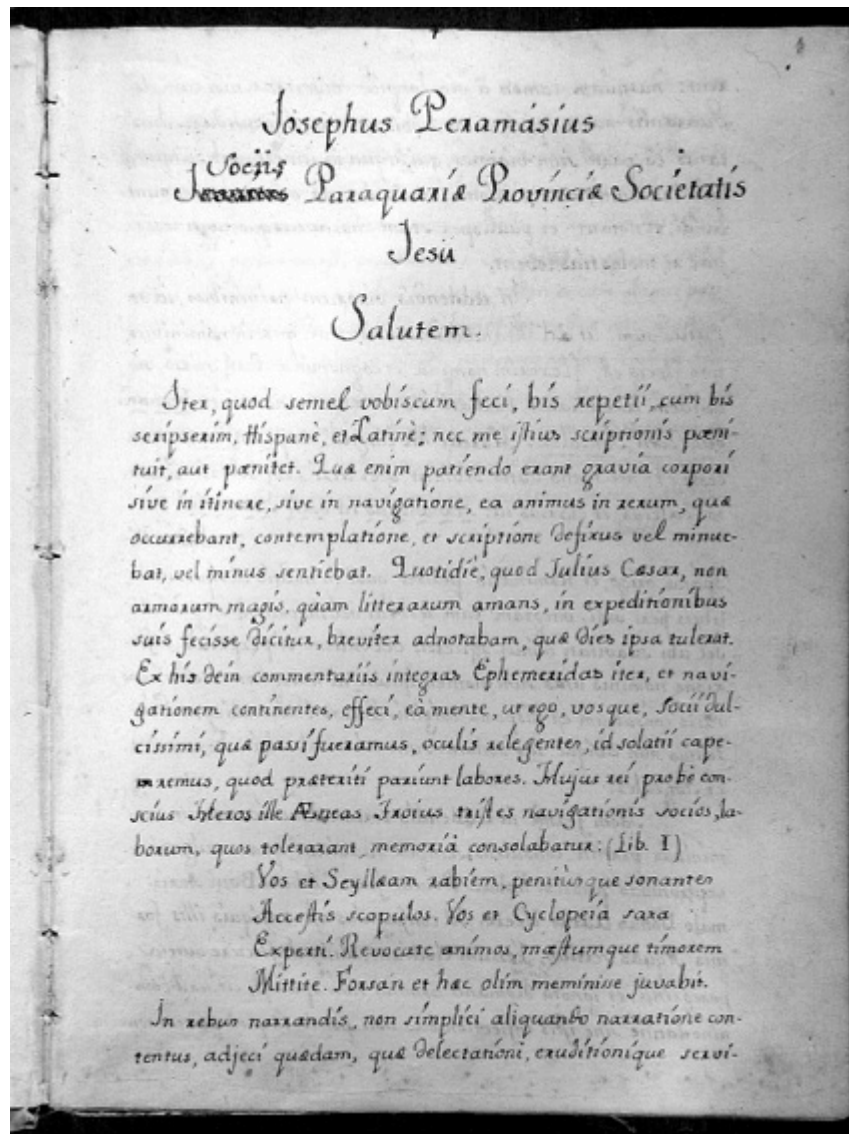 Josephus Peramásius
Socijs
Paraquariæ Provinciæ Societatis
Jesu
Salutem.
Iter, quod semel vobiscum feci, bis repetii, cum bis
scripserim, Hispanè, et Latinè; nec me istius scriptionis pœni-
tuit, aut pœnitet. Quæ enim patiendo erant gravia corpori
sive in itinere, sive in navigatione, ea animus in rerum, quæ
occurrebant, contemplatione, et scriptione defixus vel minue-
bat, vel minus sentiebat. Quotidiè, quod Julius Cæsar, non
armorum magis, quàm litterarum amans, in expeditionibus
suis fecisse dicitur, breviter adnotabam, quæ dies ipsa tulerat.
Ex his dein commentariis integras Ephemeridas iter, et navi-
gationem continentes, effeci, eâ mente, ut ego, vosque, socii dul-
cissimi, quæ passi fueramus, oculis relegentes, id solatii cape-
remus, quod præteriti pariunt labores. Hujus rei probè con-
scius Heros ille Æneas Troius tristes navigationis socios, la-
borum, quos tolerarant, memoriâ consolabatur: (Lib. I)
Vos et Scyllæam rabiem, penitùsque sonantes
Accestis scopulos. Vos et Cyclopeiâ saxa
Experti. Revocate animos, mæstumque timorem
Mittite. Forsan et hæc olim meminisse juvabit.
In rebus narrandis, non simplici aliquando narratione con-
tentus, adjeci quædam, quæ delectationi, eruditionique servi-